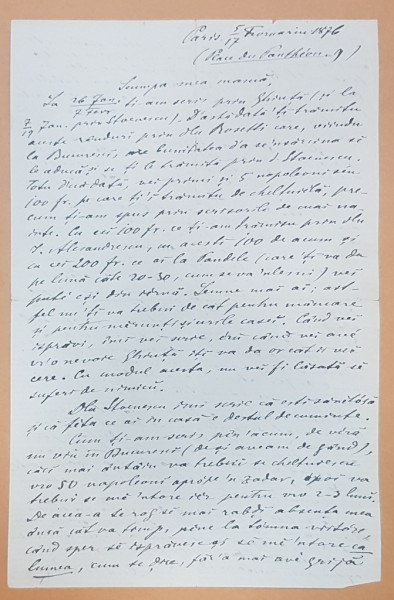 Paris 5/17 Fevruariu 1876
(Place du Panthéon 9)
Scumpa mea mamă,
La 26 Jan./7 Fevr. ți-am scris prin Ghiuță (și la
7/19 Jan. prin Stoenescu). D'astădată îți trămitu
aceste rânduri prin Dlu Rosetti care, viindu
la Bucuresci, are bunătatea d'a se 'nsărcina să
le aducă și să ți le trămită prin J Stoenescu.
Totu d'uădată, vei priimi și 5 napoleoni séu
100 fr. pe care ți-i trămitu de cheltuélă, pre-
cum ți-am spus prin scrisorile de mai na-
inte. Cu cei 100 fr. ce ți-am trămisu prin dlu
J. Alexandrescu, cu acesti 100 de acum și
cu cei 200 fr. ce ai la Pandele (care ți va da
pe lună câte 20-30, cum se va 'nlesni) vei
puté eși din iérnă. Lemne mai ai; ast-
fel nu 'ți va trebui de cât pentru mâncare
și pentru mărunțișiurile casei. Când vei
isprăvi, îmi vei scrie, éru când vei avé
vr'o nevoe Ghiuță îți va da or cât îi vei
cere. Cu modul acesta, nu vei fi lăsată să
suferi de nimicu.
Dlu Stoenescu îmi scrie că ești sănătósă
și că fata ce ai în casă e destul de cuminte.
Cum ți-am scris pîn'acum, de vară
nu viu în Bucuresci (de și aveam de gând),
căci mai ântâiu va trebui să cheltuescu
vro 50 napoleoni aprópe 'n zadar, apoi va
trebui să mĕ 'ntorc iar pentru vro 2-3 luni.
De aceea te rog să mai rabdi absența mea
âncă cât va timp, pêne la tómna viitóre
când sper să isprăvesc și să mĕ 'ntorc ca
lumea, cum se dice, făr'a mai avé grijă